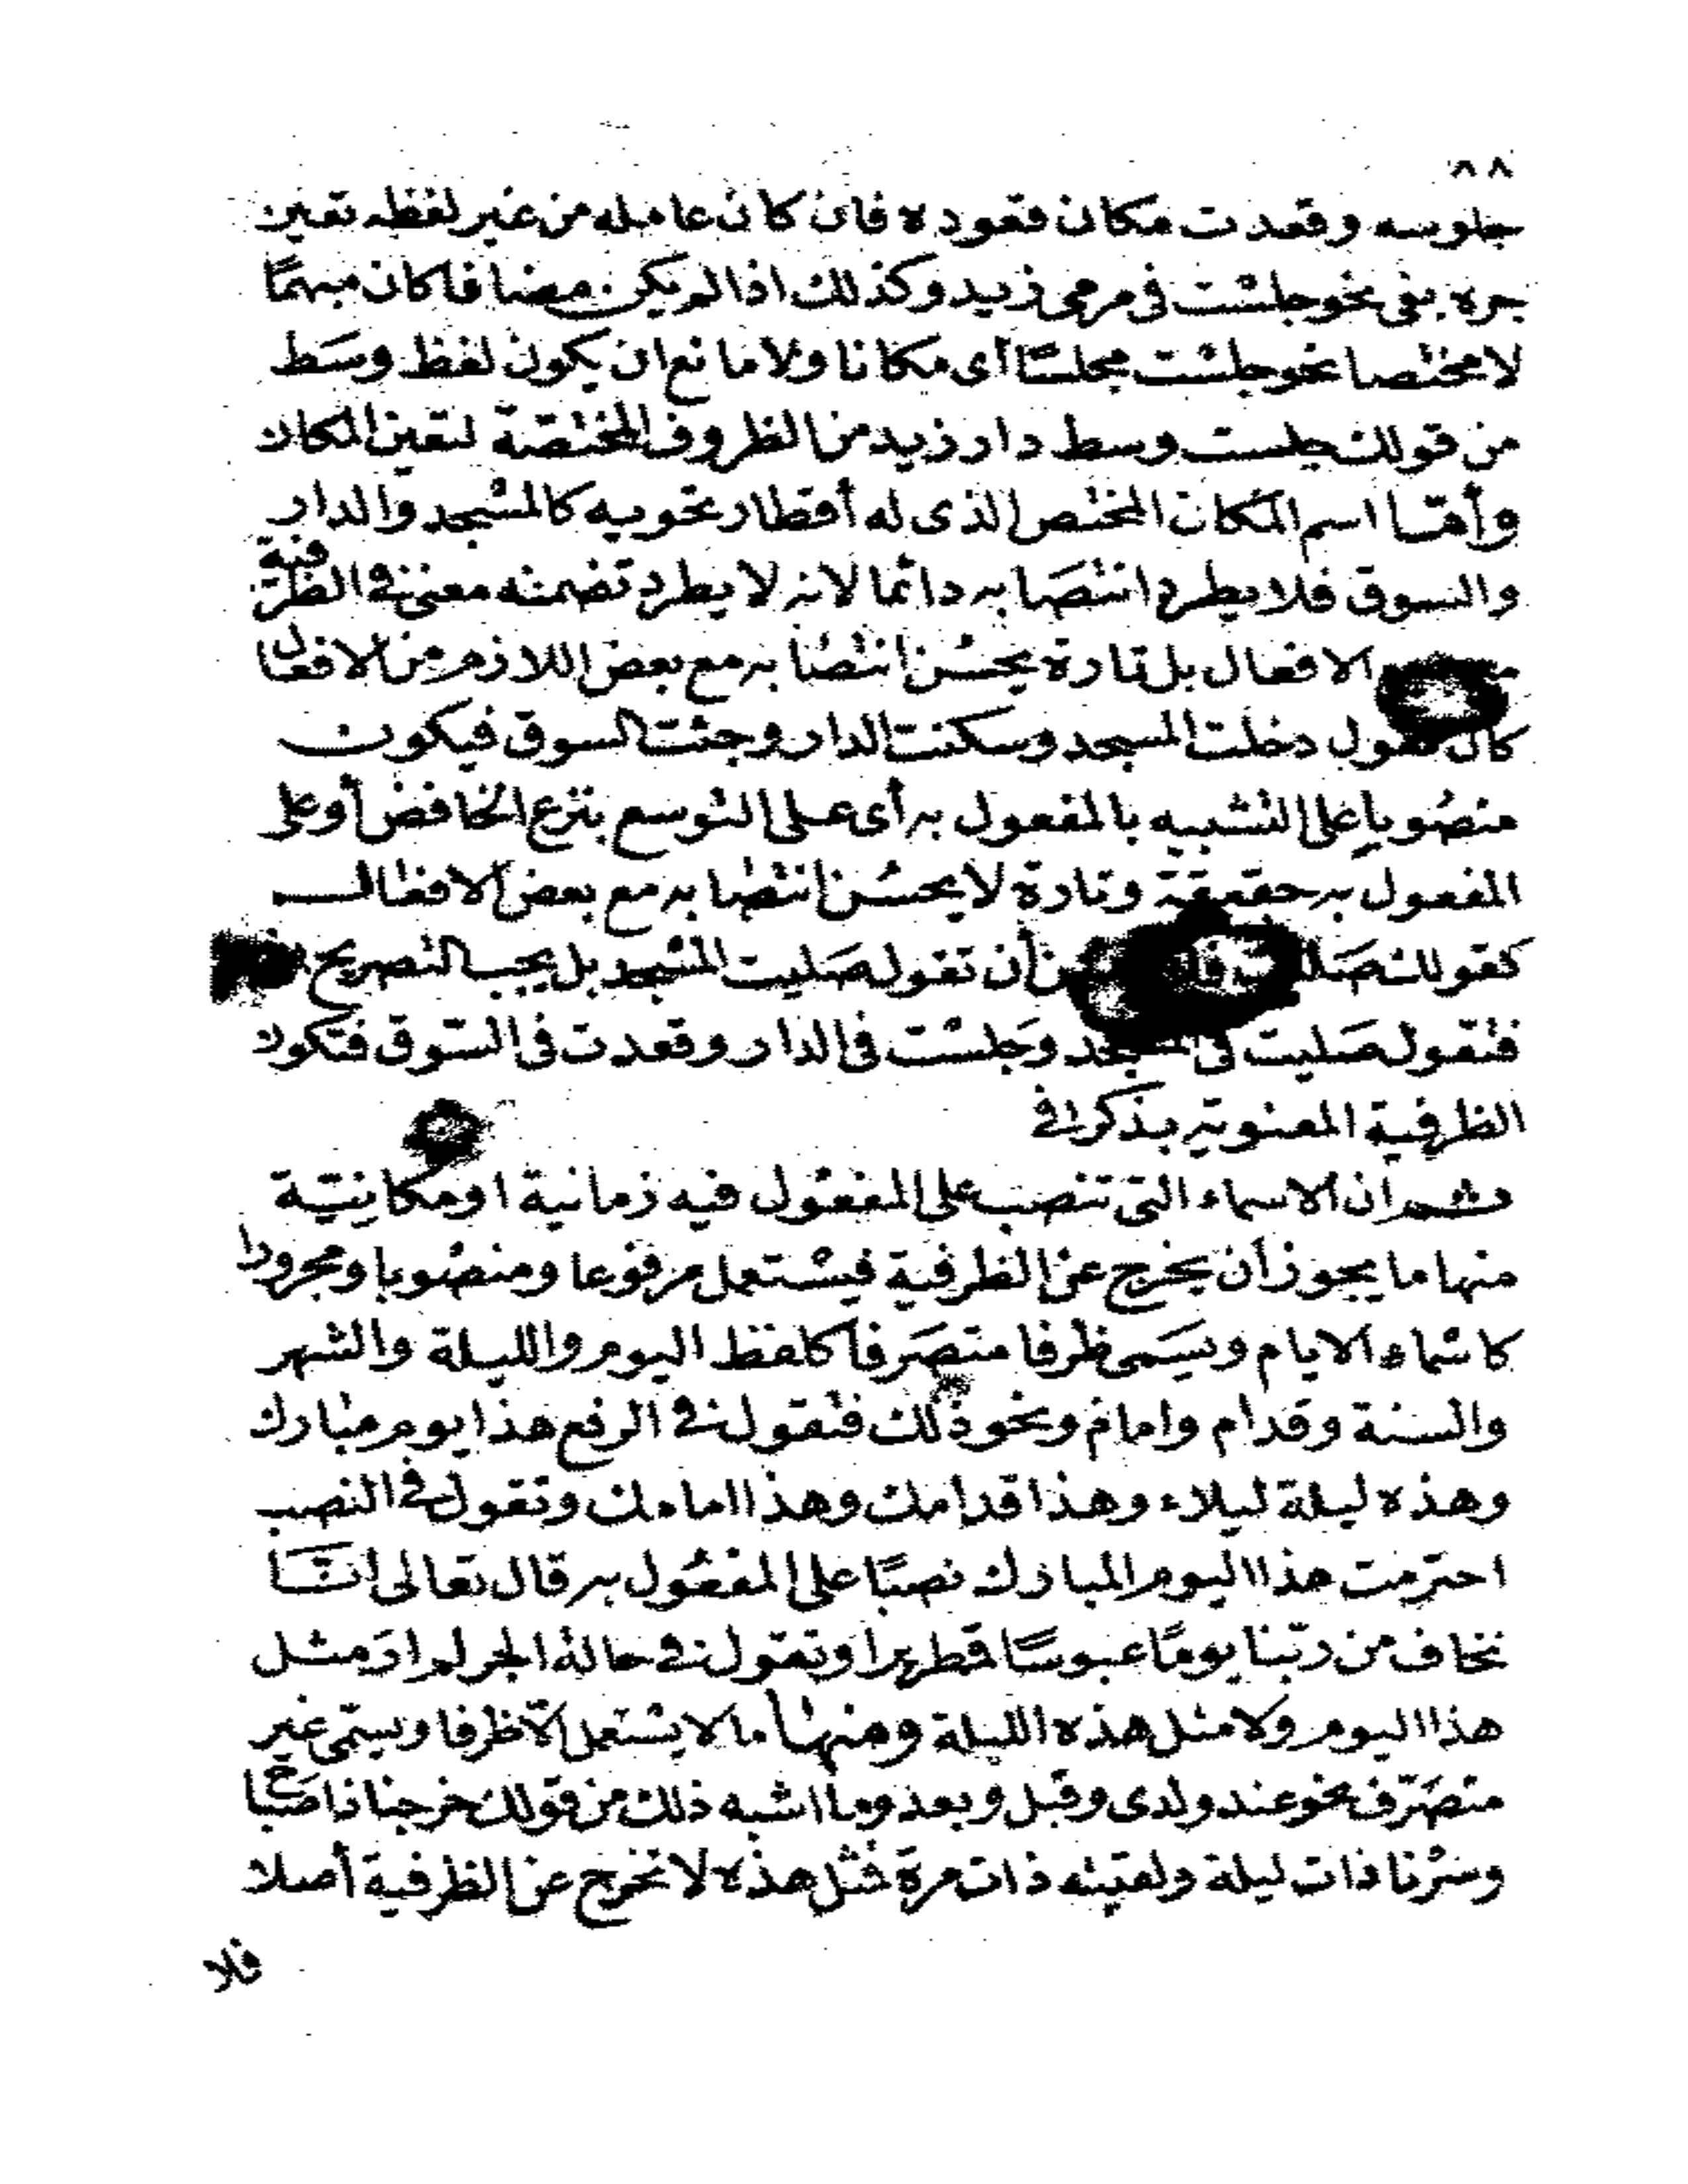 ٨٨
جلوسه وقعدت مكان قعوده فان كان عامله من غير لفظه تعين
جره بفى نحو جلست فى مرمى زيد وكذلك اذا لم يكن مضافا كان مبهمًا
لا مختصا نحو جلست مجلسًا أى مكانا ولا مانع ان يكون لفظ وسَط
من قولك جلست وسط دار زيد من الظروف المختصة لتعين المكان
وأمّا اسم المكان المختص الذى له أقطار تحويه كالمسجد والدار
والسوق فلا يطرد انتصَابه دائما لانه لا يطرد تضمنه معنى فى الظرفية
الافعال بل تارة يحسُن انتصَابه مع بعض اللازم من الافعال
كان تقول دخلت المسجد وسكنت الدار وجئت السوق فيكون
منصُوبا على التشبيه بالمفعول به أى على التوسع بنزع الخافض أو على
المفعول به حقيقة وتارة لا يحسُن انتصابه مع بعض الافعال
كقولك صَليت أن تقول صَليت المسجد بل يجب التصريح
فتقول صَليت فى المسجد وجَلست فى الدار وقعدت فى السّوق فتكون
الظرفية المعنوية بذكر فى
ثم ان الاسماء التى تنصب على المفعُول فيه زمانية او مكانيّة
منها ما يجوز أن يخرج عن الظرفية فيستعمل مرفوعا ومنصُوبا ومجرورا
كاسْماء الايام ويسَمى ظرفا متصَرفا كلفظ اليوم والليلة والشهر
والسنة وقدام وامام ونحو ذلك فتقول فى الرفع هذا يوم مبارك
وهذه ليلة ليلاء وهذا قدامك وهذا امامك وتقول فى النصب
احترمت هذا اليوم المبارك نصبًا على المفعُول به قال تعالى انّا
نخاف من ربّنا يومًا عبوسًا قمطريرا وتقول فى حالة الجر لم ارَ مثل
هذا اليوم ولا مثل هذه الليلة ومنها ما لا يستعمل الّا ظرفا ويسمّى غير
متصَرّف نحو عند ولدى وقبل وبعد وما اشبه ذلك من قولك خرجنا ذا صَباح
وسرْنا ذات ليلة ولقيته ذات مرة فمثل هذه لا تخرج عن الظرفية أصلا
فلا